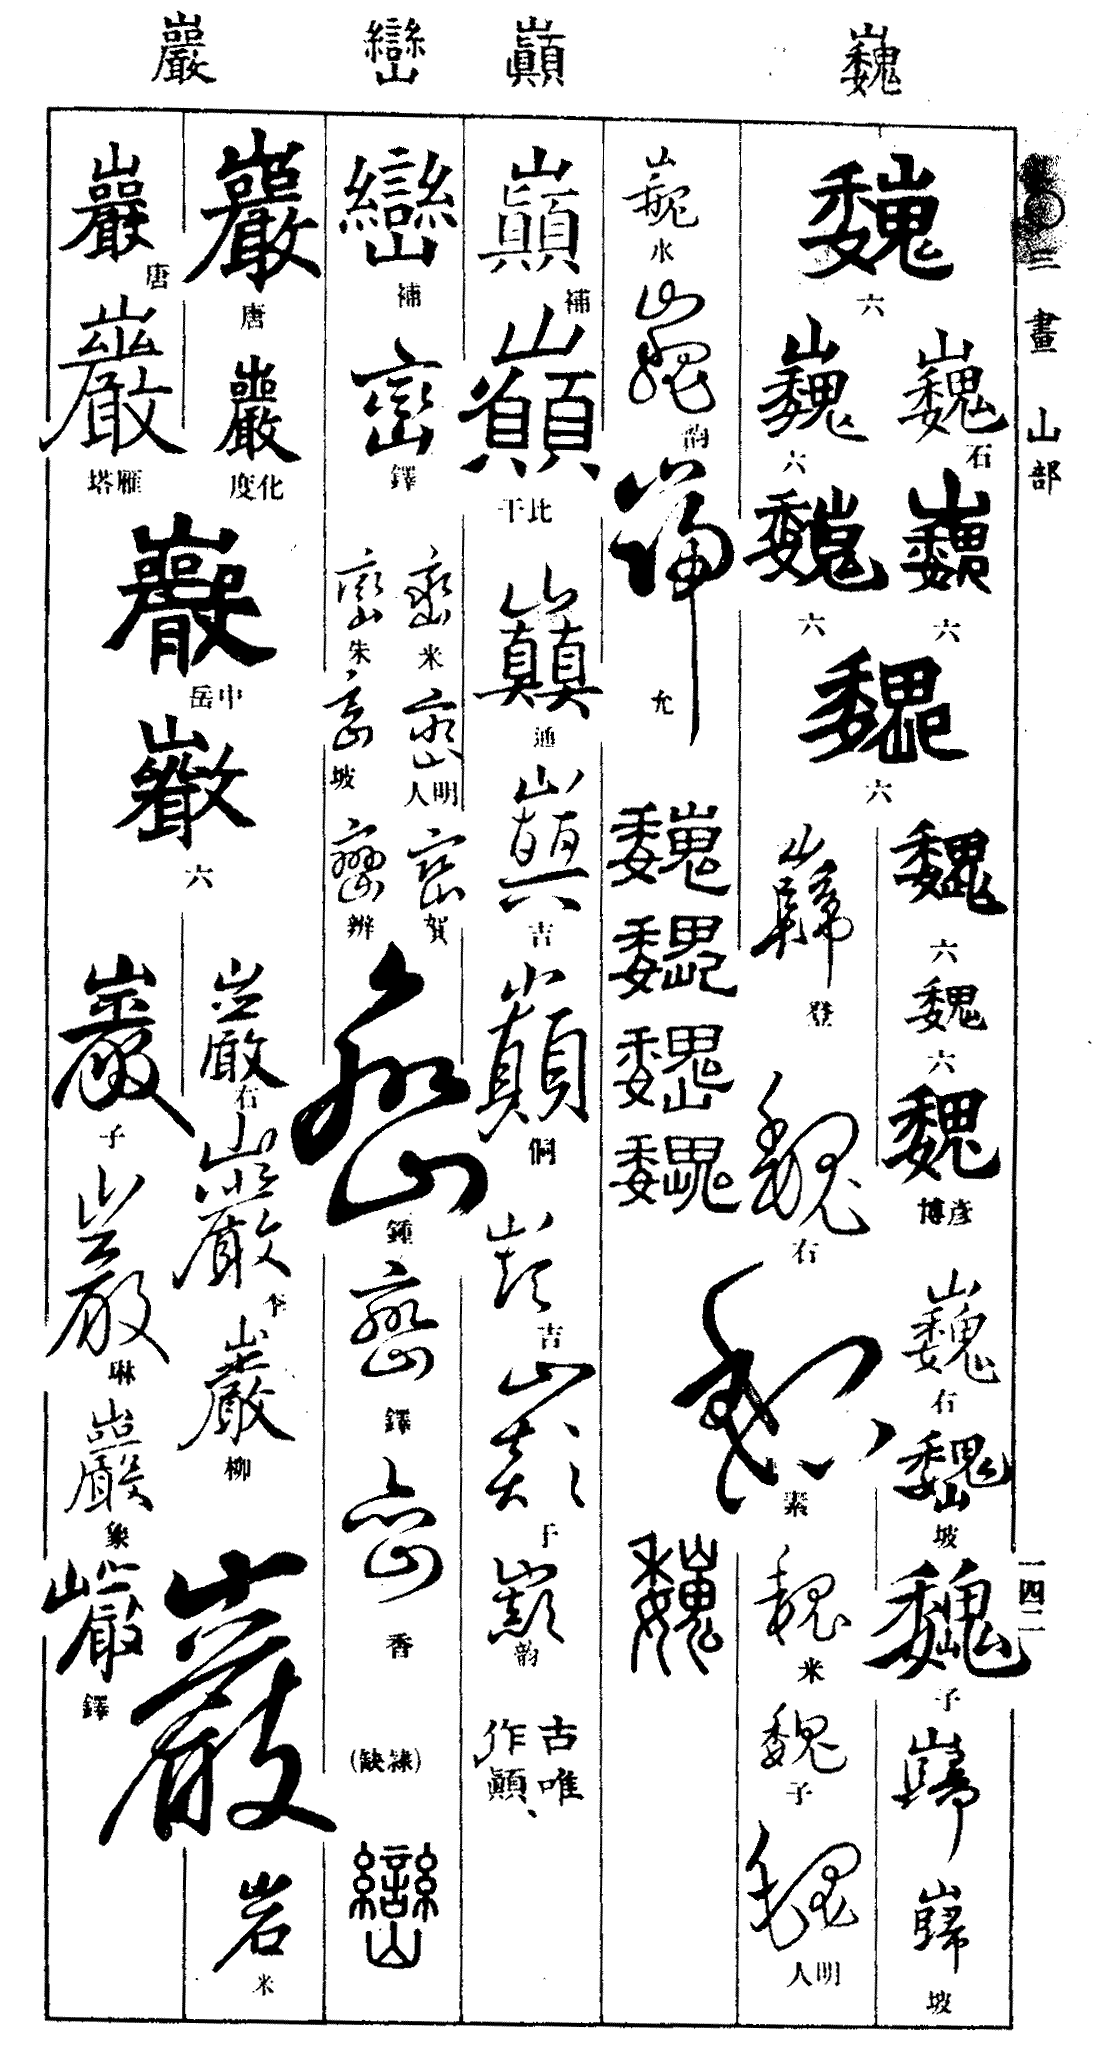 巍
巔
巒
巖
三畫 山部
一四二
巍
六
巍
石
巍
六
巍
六
巍
六
巍
六
巍
六
巍
六
巍
彥博
巍
右
巍
坡
巍
子
巋
巋
坡
巋
登
巍
右
巍
素
巍
米
巍
子
巍
明人
巍
水
巍
韵
巋
允
巍
巍
巍
巍
巍
巔
補
巔
比干
巔
通
巔
吉
巔
侗
巔
吉
巔
于
巔
韵
古唯
作顚、
巒
補
巒
鐸
巒
米
巒
朱
巒
明人
巒
坡
巒
賀
巒
辦
巒
鍾
巒
鐸
巒
香
(隸缺)
巒
巖
唐
巖
化度
巖
唐
巖
雁塔
巖
中岳
巖
六
巖
右
巖
李
巖
柳
巖
岩
米
巖
子
巖
琳
巖
象
巖
鐸